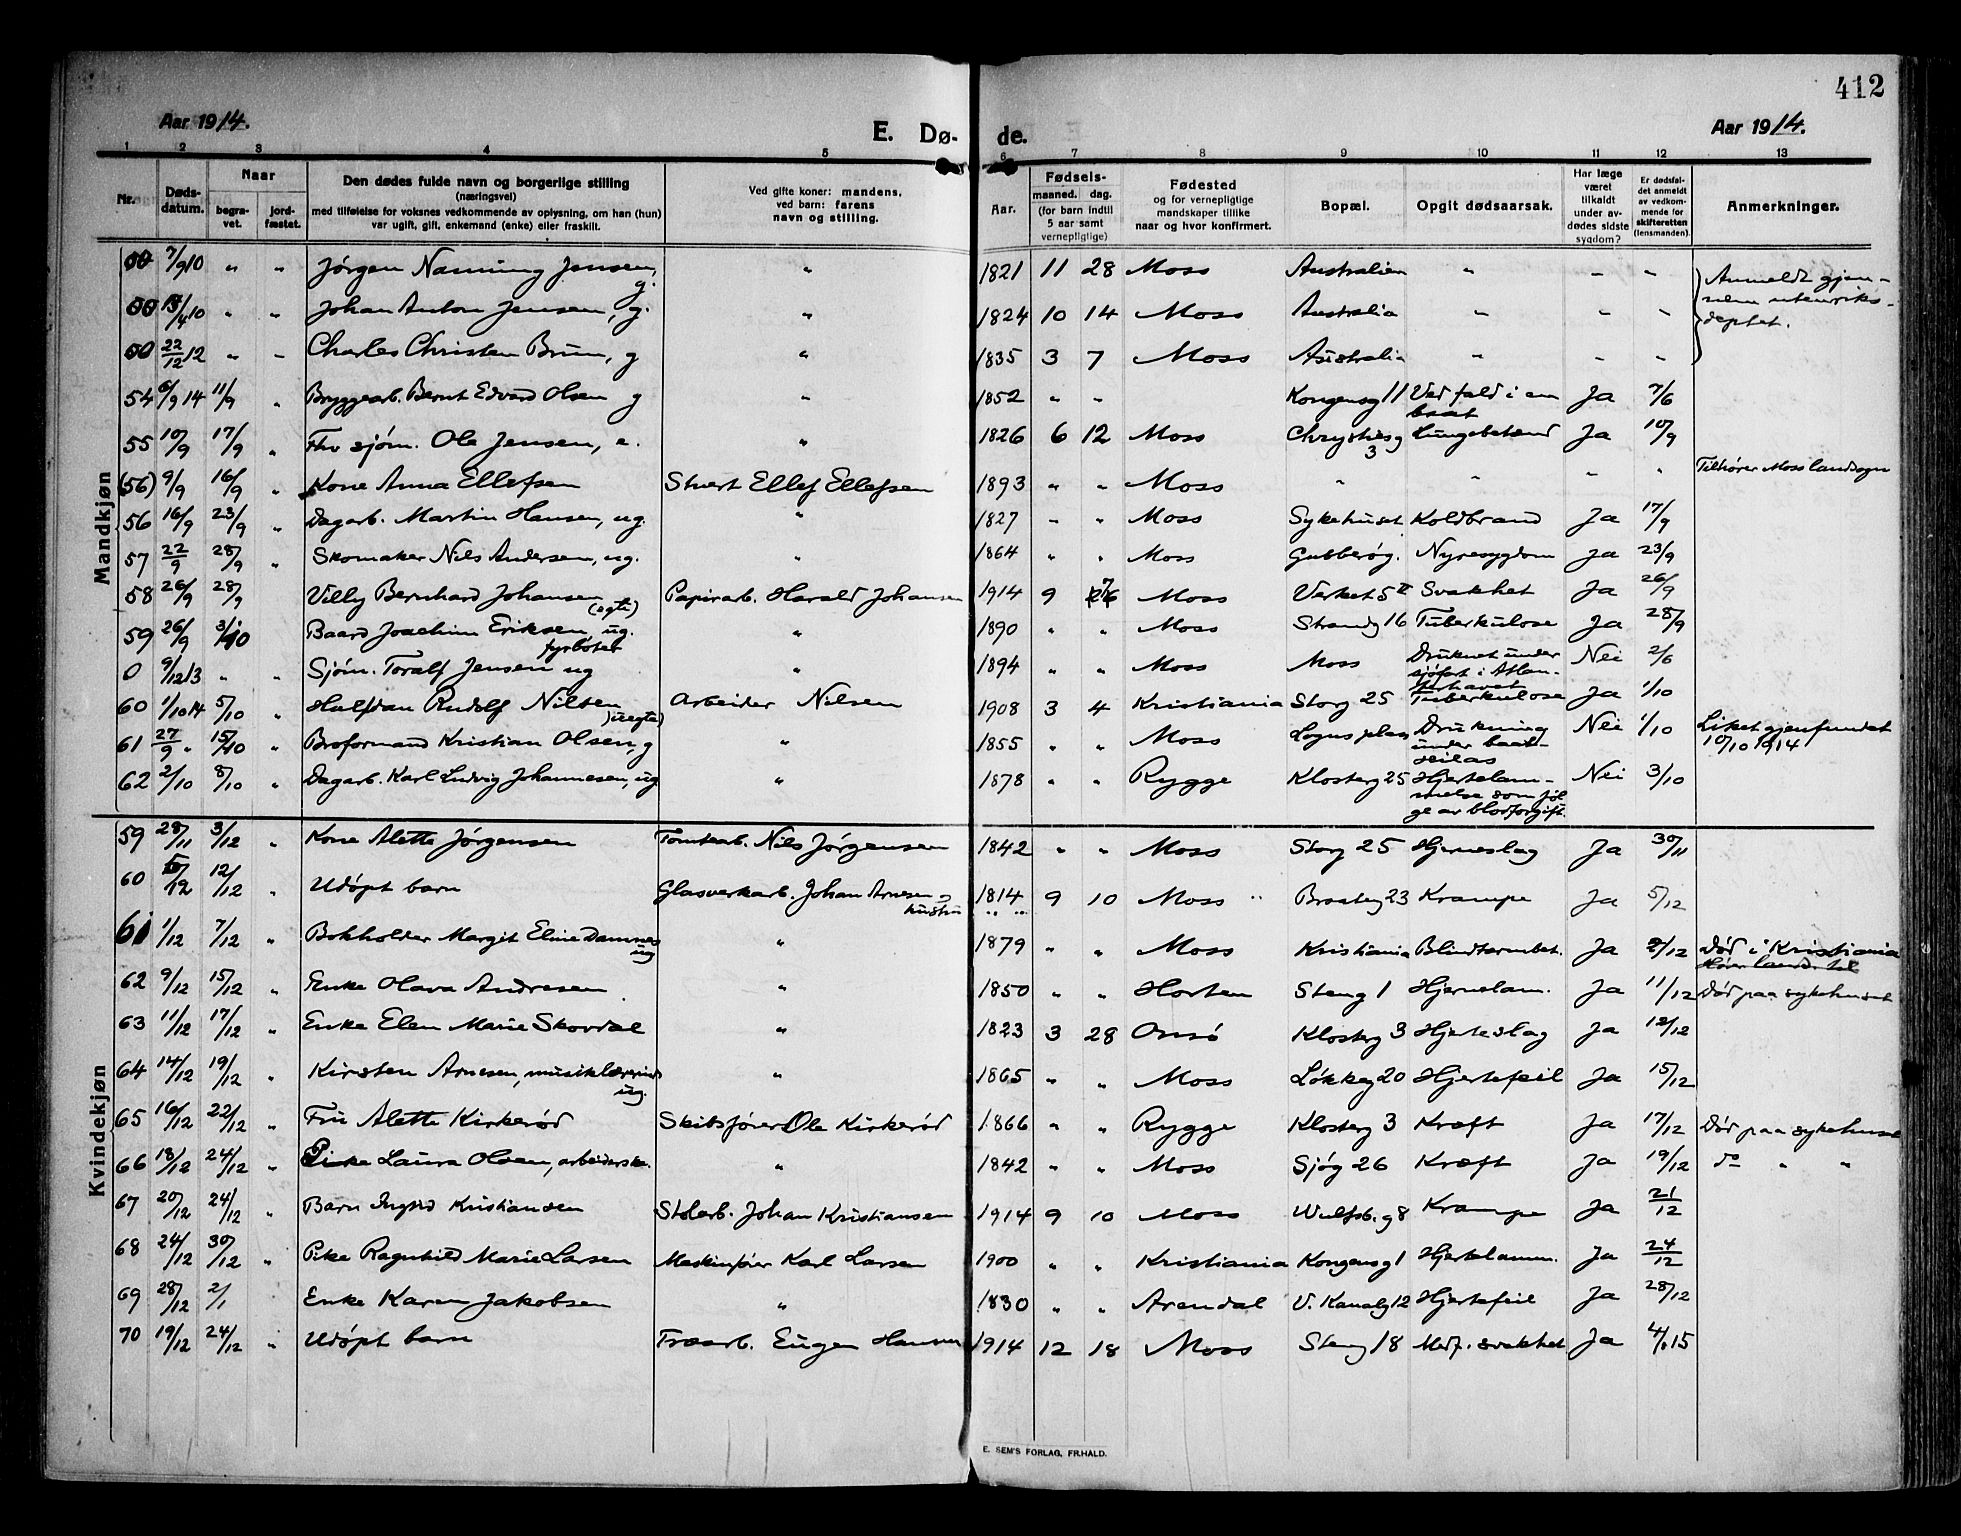 412
Aar 1914. E. Dø- de. Aar 1914.
1 2 3 4 5 6 7 8 9 10 11 12 13
Nr. Døds-datum. Naar begra-vet. jord-fæstet. Den dødes fulde navn og borgerlige stilling (næringsvei) med tilføielse for voksnes vedkommende av oplysning, om han (hun) var ugift, gift, enkemand (enke) eller fraskilt. Ved gifte koner: mandens, ved barn: farens navn og stilling. Aar. Fødsels- maaned. dag. (for barn indtil 5 aar samt vernepligtige) Fødested og for vernepligtige mandskaper tillike naar og hvor konfirmert. Bopæl. Opgit dødsaarsak. Har læge været tilkaldt under av-dødes sidste sygdom? Er dødsfal-det anmeldt av vedkom-mende for skifteretten (lensmanden). Anmerkninger.
Mandkjøn
7/9 10 " " Jørgen Nanning Jensen, g. " 1821 11 28 Moss Australien " - " Anmeldt gjen-
13/4 10 " " Johan Anton Jensen, g. " 1824 10 14 Moss Australia " - " nem utenriks-
22/12 12 " " Charles Christen Bruun, g " 1835 3 7 Moss Australia " - " deptet.
54 6/9 14 11/9 " Bryggearb. Bernt Edvard Olsen g " 1852 " " Kongensg 11 Ved fald i en baat Ja 7/6
55 10/9 17/9 " Fhv sjøm. Ole Jensen, e. " 1826 6 12 Moss Chrystiesg 3 Lungebetænd Ja 10/9
(56) 9/9 16/9 " Kone Anna Ellefsen Stuert Ellef Ellefsen 1893 " " Moss " " " " Tilhører Moss landsogn
56 16/9 23/9 " Dagarb. Martin Hansen, ug. " 1827 " " Moss Sykehuset Koldbrand Ja 17/9
57 22/9 28/9 " Skomaker Nils Andersen, ug. " 1864 " " Moss Gubberøg. Nyresygdom Ja 23/9
58 26/9 28/9 Villy Bernhard Johansen (egte) Papirarb. Harald Johansen 1914 9 Moss Verket 5 Svakhet Ja 26/9
59 26/9 3/10 Baard Joachim Eriksen, ug. fyrbøter " 1890 " " Moss Strandg 16 Tuberkulose Ja 28/9
0 9/12 13 " " Sjøm. Toralf Jensen ug " 1894 " " Moss Moss Druknet under sjøfart i Atlan-terhavet Nei 2/6
60 1/10 14 5/10 " Halfdan Rudolf Nilsen (uegte) Arbeider Nilsen 1908 3 4 Kristiania Storg 25 Tuberkulose Ja 1/10
61 27/9 " 15/10 " Broformand Kristian Olsen, g " 1855 " " Moss Logns plass Drukning under baat-seilas Nei 1/10 Liket gjenfundet 10/10 1914
62 2/10 8/10 " Dagarb. Karl Ludvig Johannesen, ug " 1878 " " Rygge Klosterg 25 Hjertelam-melse som føl ge av blodforgift. Nei 3/10
Kvindekjøn
59 28/11 3/12 " Kone Alette Jørgensen Tomtearb. Nils Jørgensen 1842 " " Moss Storg 25 Hjerneslag Ja 30/11
60 12/12 " Udøpt barn Glasverkarb. Johan Arnesen og hustru 1814 9 10 Moss Braateg 23 Krampe Ja 5/12
61 1/12 7/12 " Bokholder Margit Eline Damnes ug " 1879 " " Moss Kristiania Blindtarmbet. Ja 2/12 Død i Kristiania
62 9/12 15/12 " Enke Olava Andresen " 1850 " " Horten Steng 1 Hjernelam. Ja 11/12 Død paa sykehuset
63 11/12 17/12 " Enke Elen Marie Skovdal " 1823 3 28 Onsø Klosterg 3 Hjerteslag Ja 12/12
64 14/12 19/12 " Kirsten Arnesen, musiklærerinde ug. " 1865 " " Moss Løkkeg 20 Hjertefeil Ja 15/12
65 16/12 22/12 " Fru Alette Kirkerød Skibsfører Ole Kirkerød 1866 " " Rygge Klosterg 3 Kræft Ja 17/12 Død paa sykehuset
66 18/12 24/12 " Pike Laura Olsen, arbeiderske. " 1842 " " Moss Sjøg 26 Kræft Ja 19/12 do " "
67 20/12 24/12 " Barn Ingrid Kristiansen Stolarb. Johan Kristiansen 1914 9 10 Moss Wulfsb. g 8 Krampe Ja 21/12
68 24/12 30/12 " Pike Ragnhild Marie Larsen Maskinfører Karl Larsen 1900 " " Kristiania Kongensg 1 Hjertelamm. Ja 24/12
69 28/12 2/1 Enke Karen Jakobsen " 1830 " " Arendal V. Kanalg 12 Hjertefeil Ja 28/12
70 19/12 24/12 " Udøpt barn Træarb. Eugen Hansen 1914 12 18 Moss Steng 18 Medf. svakhet Ja 4/1 15
E. SEM'S FORLAG, FR.HALD.